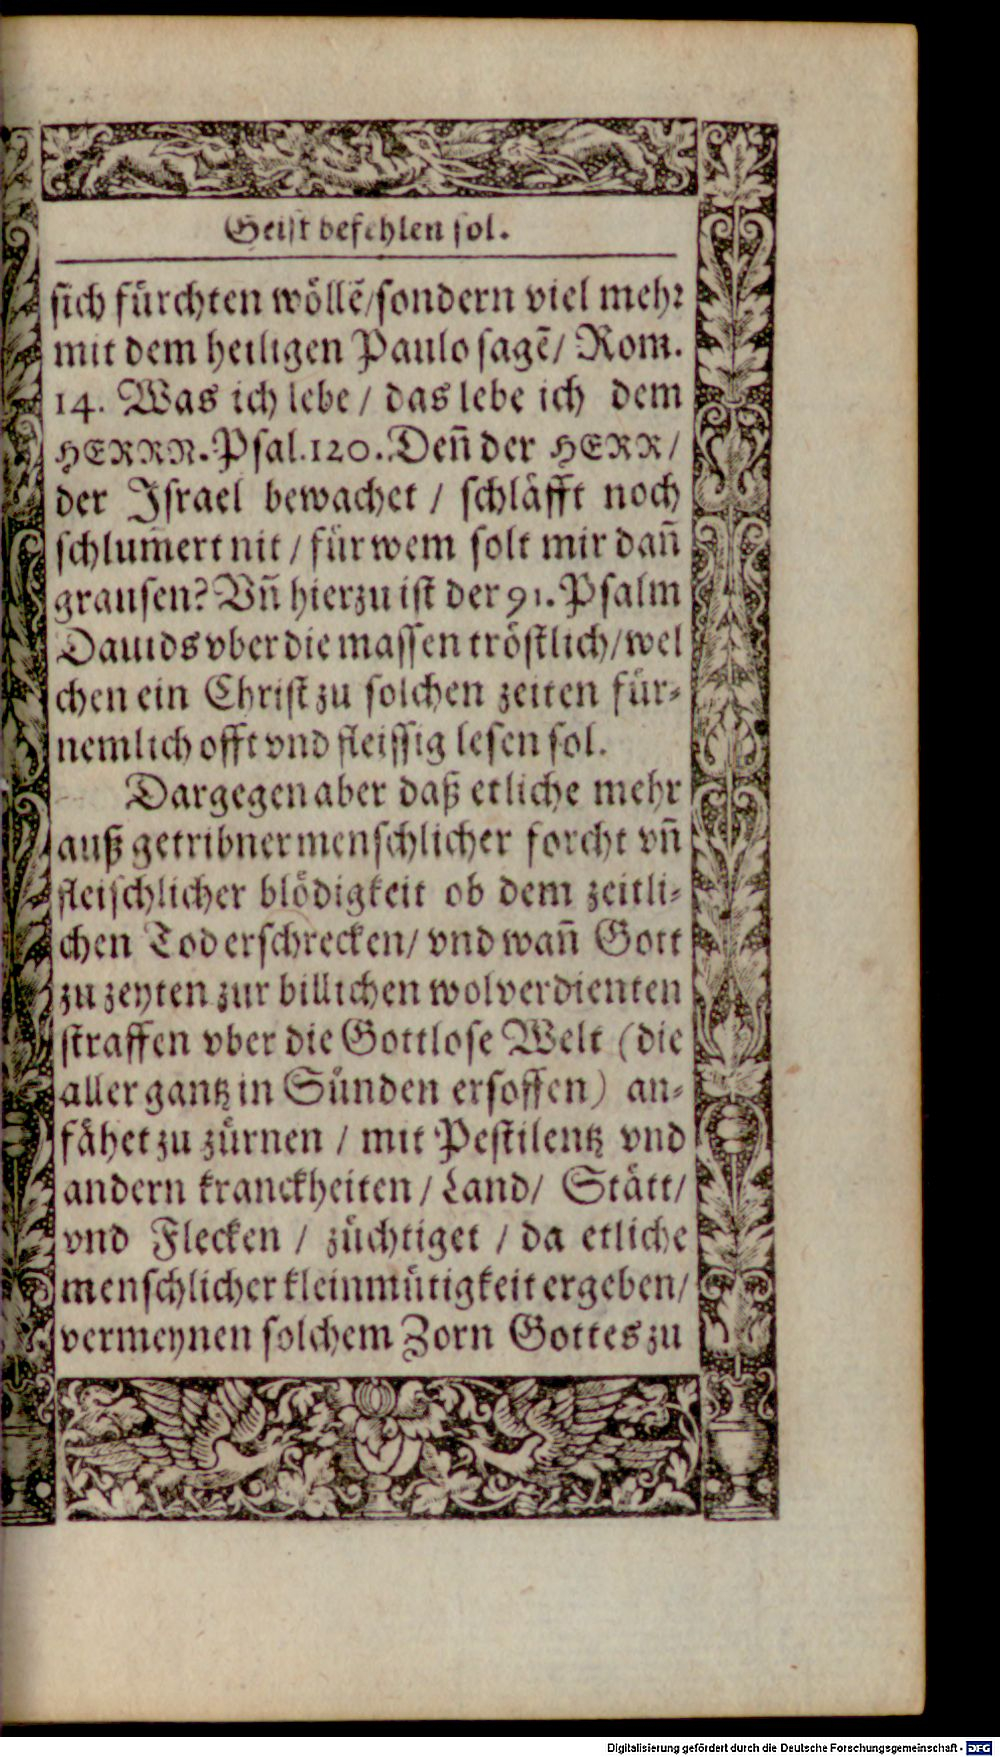 Geist befehlen sol.
sich fürchten wöllẽ/sondern viel mehr
mit dem heiligen Paulo sagẽ/ Rom.
14. Was ich lebe / das lebe ich dem
HERRN. Psal. 120. Deñ der HERR/
der Israel bewachet / schläfft noch
schlum̃ert nit / für wem solt mir dañ
grausen? Vñ hierzu ist der 91. Psalm
Dauids vber die massen tröstlich/wel
chen ein Christ zu solchen zeiten für-
nemlich offt vnd fleissig lesen sol.
Dargegen aber daß etliche mehr
auß getribner menschlicher forcht vñ
fleischlicher blödigkeit ob dem zeitli-
chen Tod erschrecken/ vnd wañ Gott
zu zeyten zur billichen wolverdienten
straffen vber die Gottlose Welt (die
aller gantz in Sünden ersoffen) an-
fähet zu zürnen / mit Pestilentz vnd
andern kranckheiten / Land/ Stätt/
vnd Flecken / züchtiget / da etliche
menschlicher kleinmütigkeit ergeben/
vermeynen solchem Zorn Gottes zu
Digitalisierung gefördert durch die Deutsche Forschungsgemeinschaft - DFG